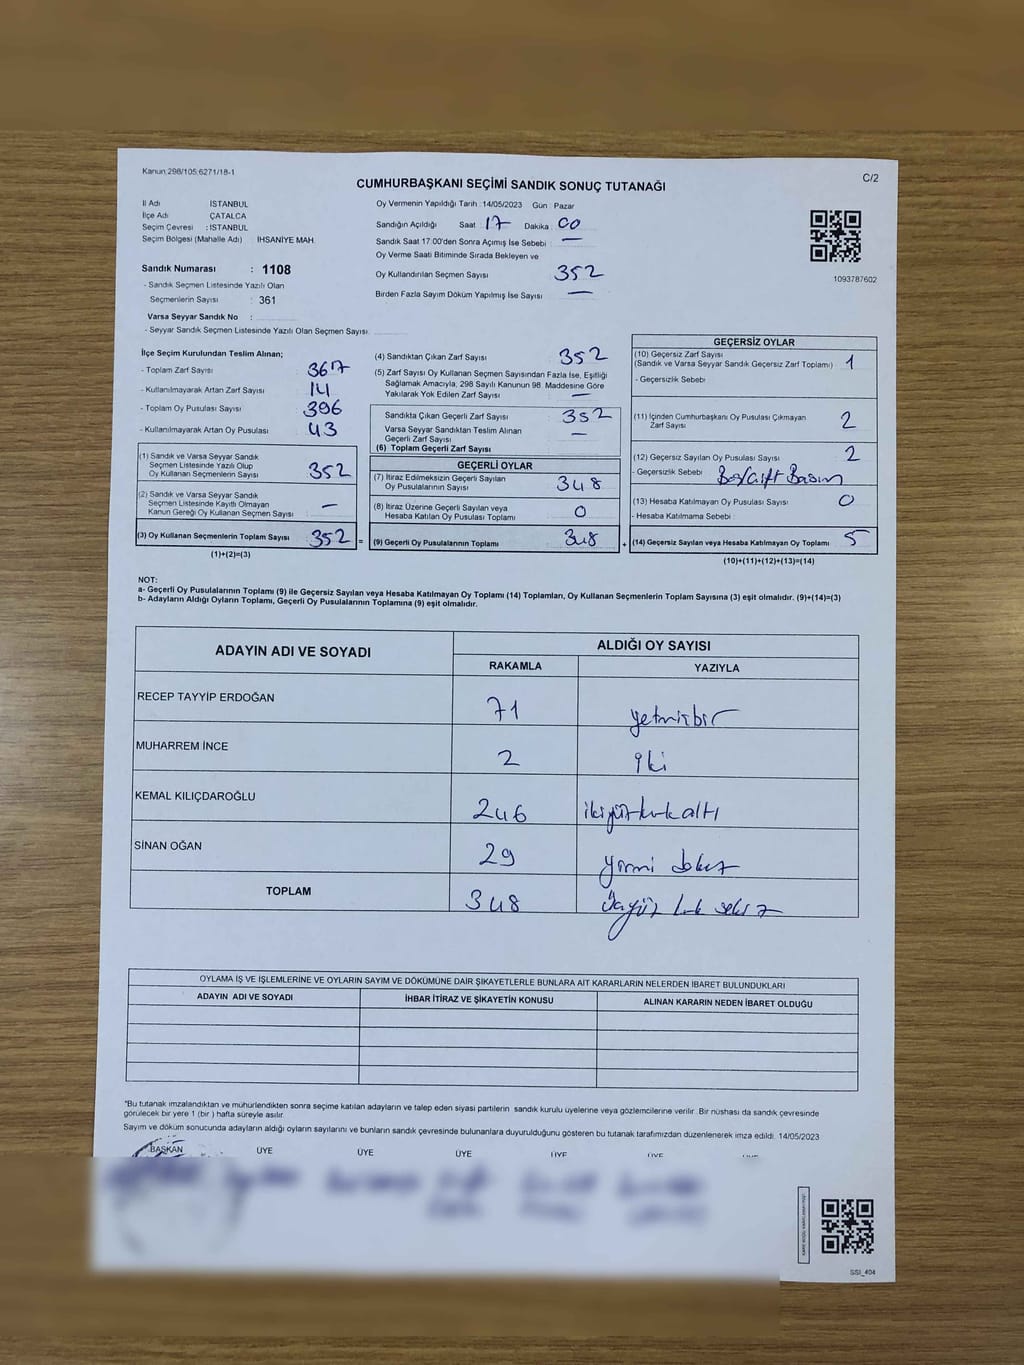 Kanun:298/105;6271/18-1
C/2
CUMHURBAŞKANI SEÇİMİ SANDIK SONUÇ TUTANAĞI
İl Adı İSTANBUL
İlçe Adı ÇATALCA
Seçim Çevresi : İSTANBUL
Seçim Bölgesi (Mahalle Adı) İHSANİYE MAH.
Sandık Numarası : 1108
- Sandık Seçmen Listesinde Yazılı Olan
Seçmenlerin Sayısı : 361
Varsa Seyyar Sandık No :
- Seyyar Sandık Seçmen Listesinde Yazılı Olan Seçmen Sayısı
Oy Vermenin Yapıldığı Tarih : 14/05/2023 Gün : Pazar
Sandığın Açıldığı Saat 17 Dakika 00
Sandık Saat 17:00'den Sonra Açımış İse Sebebi : —
Oy Verme Saati Bitiminde Sırada Bekleyen ve
Oy Kullandırılan Seçmen Sayısı 352
Birden Fazla Sayım Döküm Yapılmış İse Sayısı —
1093787602
İlçe Seçim Kurulundan Teslim Alınan;
- Toplam Zarf Sayısı 367
- Kullanılmayarak Artan Zarf Sayısı 14
- Toplam Oy Pusulası Sayısı 396
- Kullanılmayarak Artan Oy Pusulası 43
(1) Sandık ve Varsa Seyyar Sandık
Seçmen Listesinde Yazılı Olup
Oy Kullanan Seçmenlerin Sayısı 352
(2) Sandık ve Varsa Seyyar Sandık
Seçmen Listesinde Kayıtlı Olmayan
Kanun Gereği Oy Kullanan Seçmen Sayısı —
(3) Oy Kullanan Seçmenlerin Toplam Sayısı 352 =
(1)+(2)=(3)
(4) Sandıktan Çıkan Zarf Sayısı 352
(5) Zarf Sayısı Oy Kullanan Seçmen Sayısından Fazla İse, Eşitliği
Sağlamak Amacıyla, 298 Sayılı Kanunun 98. Maddesine Göre
Yakılarak Yok Edilen Zarf Sayısı —
Sandıkta Çıkan Geçerli Zarf Sayısı 352
Varsa Seyyar Sandıktan Teslim Alınan
Geçerli Zarf Sayısı —
(6) Toplam Geçerli Zarf Sayısı
GEÇERLİ OYLAR
(7) İtiraz Edilmeksizin Geçerli Sayılan
Oy Pusulalarının Sayısı 348
(8) İtiraz Üzerine Geçerli Sayılan veya
Hesaba Katılan Oy Pusulası Toplamı 0
(9) Geçerli Oy Pusulalarının Toplamı 348 +
GEÇERSİZ OYLAR
(10) Geçersiz Zarf Sayısı
(Sandık ve Varsa Seyyar Sandık Geçersiz Zarf Toplamı) 1
- Geçersizlik Sebebi :
(11) İçinden Cumhurbaşkanı Oy Pusulası Çıkmayan
Zarf Sayısı 2
(12) Geçersiz Sayılan Oy Pusulası Sayısı 2
- Geçersizlik Sebebi : Boş/Çift Basım
(13) Hesaba Katılmayan Oy Pusulası Sayısı 0
- Hesaba Katılmama Sebebi :
(14) Geçersiz Sayılan veya Hesaba Katılmayan Oy Toplamı 5
(10)+(11)+(12)+(13)=(14)
NOT:
a- Geçerli Oy Pusulalarının Toplamı (9) ile Geçersiz Sayılan veya Hesaba Katılmayan Oy Toplamı (14) Toplamları, Oy Kullanan Seçmenlerin Toplam Sayısına (3) eşit olmalıdır. (9)+(14)=(3)
b- Adayların Aldığı Oyların Toplamı, Geçerli Oy Pusulalarının Toplamına (9) eşit olmalıdır.
ADAYIN ADI VE SOYADI ALDIĞI OY SAYISI
RAKAMLA YAZIYLA
RECEP TAYYİP ERDOĞAN 71 yetmişbir
MUHARREM İNCE 2 iki
KEMAL KILIÇDAROĞLU 246 ikiyüzkırkaltı
SİNAN OĞAN 29 yirmi dokuz
TOPLAM 348 üçyüz kırk sekiz
OYLAMA İŞ VE İŞLEMLERİNE VE OYLARIN SAYIM VE DÖKÜMÜNE DAİR ŞİKAYETLERLE BUNLARA AİT KARARLARIN NELERDEN İBARET BULUNDUKLARI
ADAYIN ADI VE SOYADI İHBAR İTİRAZ VE ŞİKAYETİN KONUSU ALINAN KARARIN NEDEN İBARET OLDUĞU
"Bu tutanak imzalandıktan ve mühürlendikten sonra seçime katılan adayların ve talep eden siyasi partilerin sandık kurulu üyelerine veya gözlemcilerine verilir. Bir nüshası da sandık çevresinde
görülecek bir yere 1 (bir ) hafta süreyle asılır.
Sayım ve döküm sonucunda adayların aldığı oyların sayılarını ve bunların sandık çevresinde bulunanlara duyurulduğunu gösteren bu tutanak tarafımızdan düzenlenerek imza edildi. 14/05/2023
BAŞKAN ÜYE ÜYE ÜYE ÜYE ÜYE
SSI_404